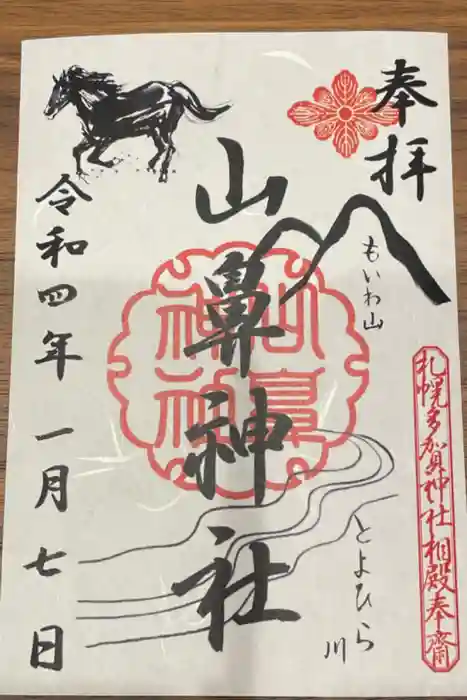 奉拝
もいわ山
札幌多賀神社相殿奉齋
とよひら川
山鼻神社
山鼻
神社
令和四年一月七日